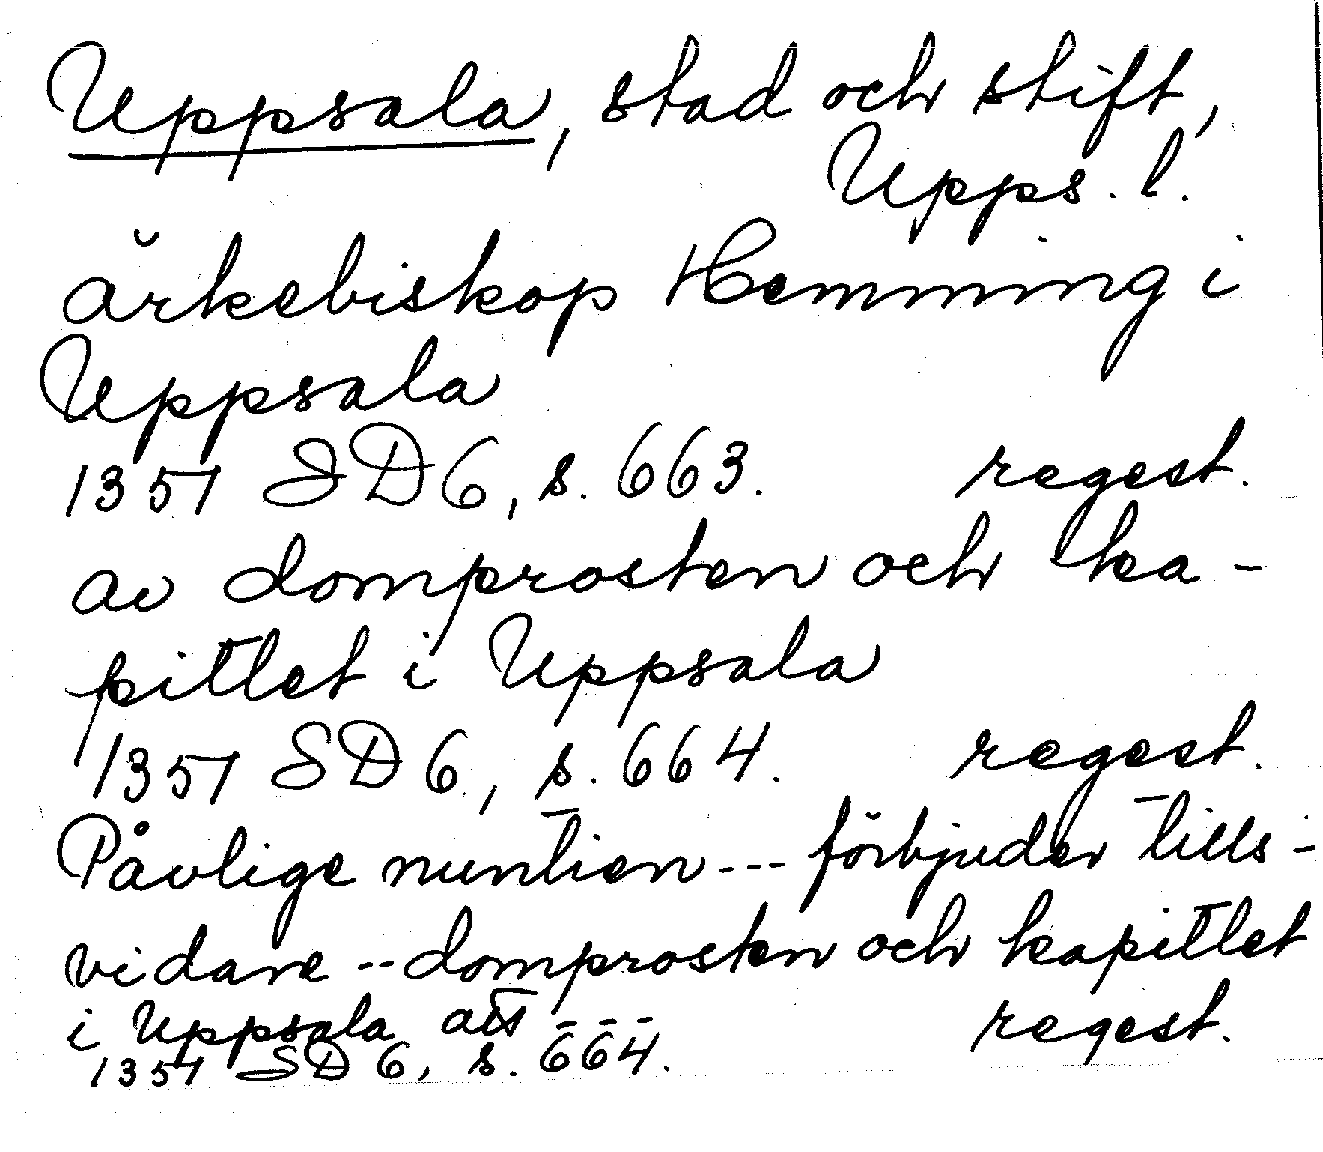 Uppsala, stad och stift,
Upps. l.
ärkebiskop Hemming i
Uppsala
1357 SD 6, s. 663. regest.
av domprosten och ka-
pitlet i Uppsala
1357 SD 6, s. 664. regest.
Påvlige nuntien --- förbjuder tills-
vidare -- domprosten och kapitlet
i Uppsala att --- regest.
1357 SD 6, s. 664.